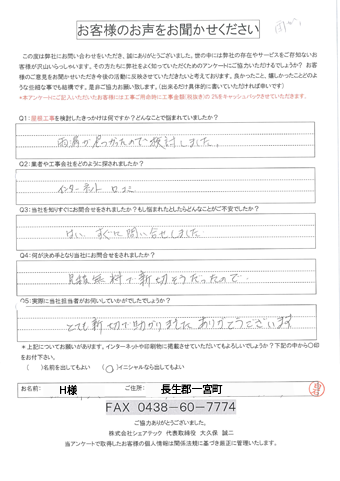 お客様のお声をお聞かせください
この度は弊社にお問い合わせをいただき、誠にありがとうございました。世の中には弊社の存在やサービスをご存知ないお
客様が沢山いらっしゃいます。その方たちに弊社をよく知っていただくためのアンケートにご協力いただけるでしょうか？ お客
様のご意見をお聞かせいただき今後の活動に反映させていただきたいと考えております。良かったこと、嬉しかったことどのよ
うな些細な事でも結構です。是非ご協力お願い致します。(出来るだけ具体的に書いていただければ幸いです)
*本アンケートにご記入いただいたお客様には工事ご用命時に工事金額(税抜き)の2%をキャッシュバックさせていただきます。
Q1:屋根工事を検討したきっかけは何ですか？どんなことで悩まれていましたか？
雨漏がきっかけで検討しました。
Q2:業者や工事会社をどのように探されましたか？
インターネット 口コミ
Q3:当社を知りすぐにお問合せをされましたか？もし悩まれたとしたらどんなことがご不安でしたか？
はい、すぐに問い合せしました
Q4:何が決め手となり当社にお問合せされましたか？
見積無料で親切そうだったので
Q5:実際に当社担当者がお伺いしていかがでしたでしょうか？
とても親切で助かりました ありがとうございます
*上記についてお願いがあります。インターネットや印刷物に掲載させていただいてもよろしいでしょうか？下記の中から○印
をお付下さい。
(　)名前を出してもよい　(○)イニシャルなら出してもよい
お名前: H様 ご住所: 長生郡一宮町
FAX 0438-60-7774
ご協力ありがとうございました。
株式会社シェアテック 代表取締役 大久保 誠二
当アンケートで取得したお客様の個人情報は関係法規に基づき厳正に管理いたします。